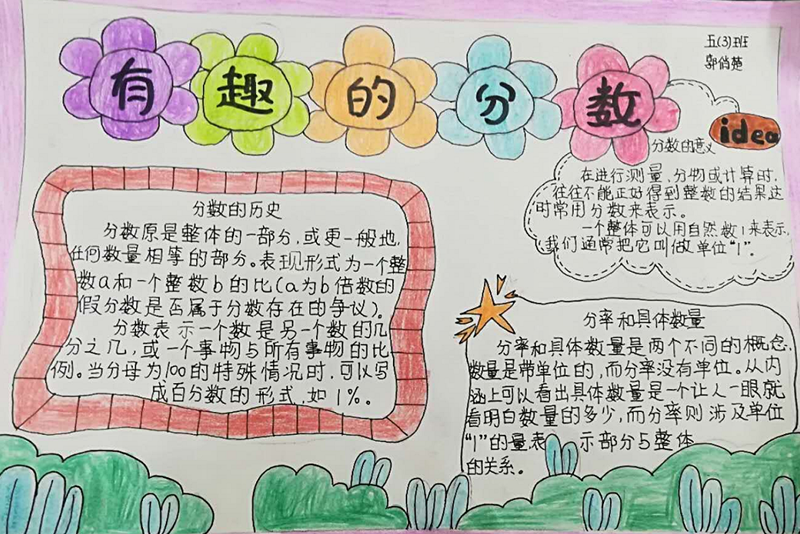 有趣的分数
五(3)班
郭俏楚
idea
分数的意义
在进行测量、分物或计算时,
往往不能正好得到整数的结果这
时常用分数来表示。
一个整体可以用自然数1来表示,
我们通常把它叫做单位“1”。
分数的历史
分数原是整体的一部分,或更一般地,
任何数量相等的部分。表现形式为一个整
数a和一个整数b的比(a为b倍数的
假分数是否属于分数存在的争议)。
分数表示一个数是另一个数的几
分之几,或一个事物与所有事物的比
例。当分母为100的特殊情况时,可以写
成百分数的形式,如1%。
分率和具体数量
分率和具体数量是两个不同的概念,
数量是带单位的,而分率没有单位。从内
涵上可以看出具体数量是一个让人一眼就
看明白数量的多少,而分率则涉及单位
“1”的量,表示部分与整体
的关系。